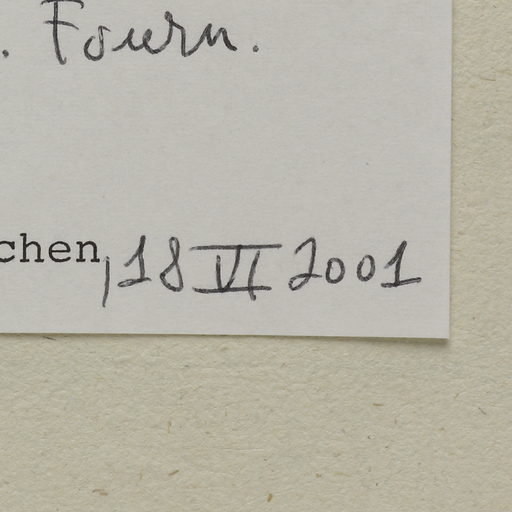 . Fourn.
chen, 18 VI 2001